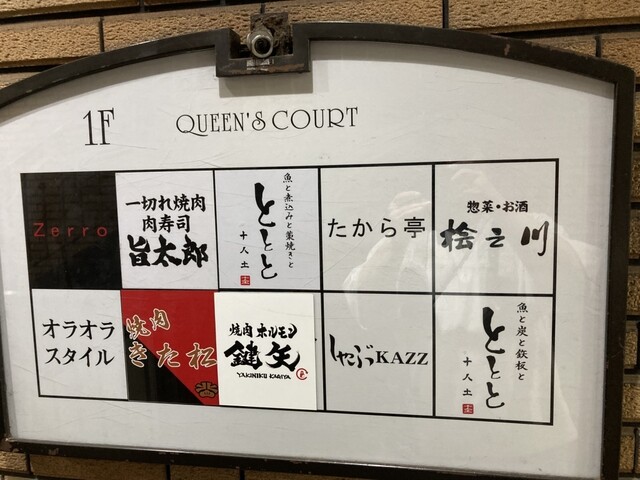 1F
QUEEN'S COURT
Zerro
一切れ焼肉
肉寿司
旨太郎
魚と煮込みと藁焼きと
ととと
十人土
たから亭
惣菜・お酒
桧三川
オラオラ
スタイル
焼肉
きた松
焼肉 ホルモン
鍵矢
YAKINIKU KAGIYA
しゃぶKAZZ
魚と炭と鉄板と
ととと
十人土